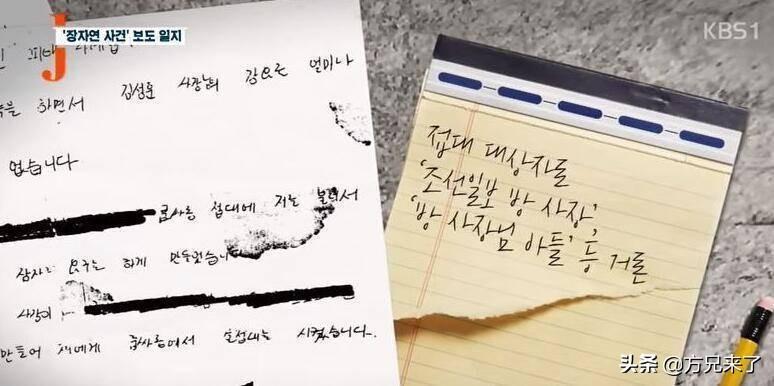 '장자연 사건' 보도 일지
KBS1
하면서 김성훈 사장님의 강요로 얼마나
없습니다
룸싸롱 접대에 저는 불려서
요구를 하게 만들었습니다
사장이
만들어 룸싸롱에서 술접대를 시켰습니다.
접대 대상자들
'조선일보 방 사장'
'방 사장님 아들' 등 거론
头条 @方兄来了